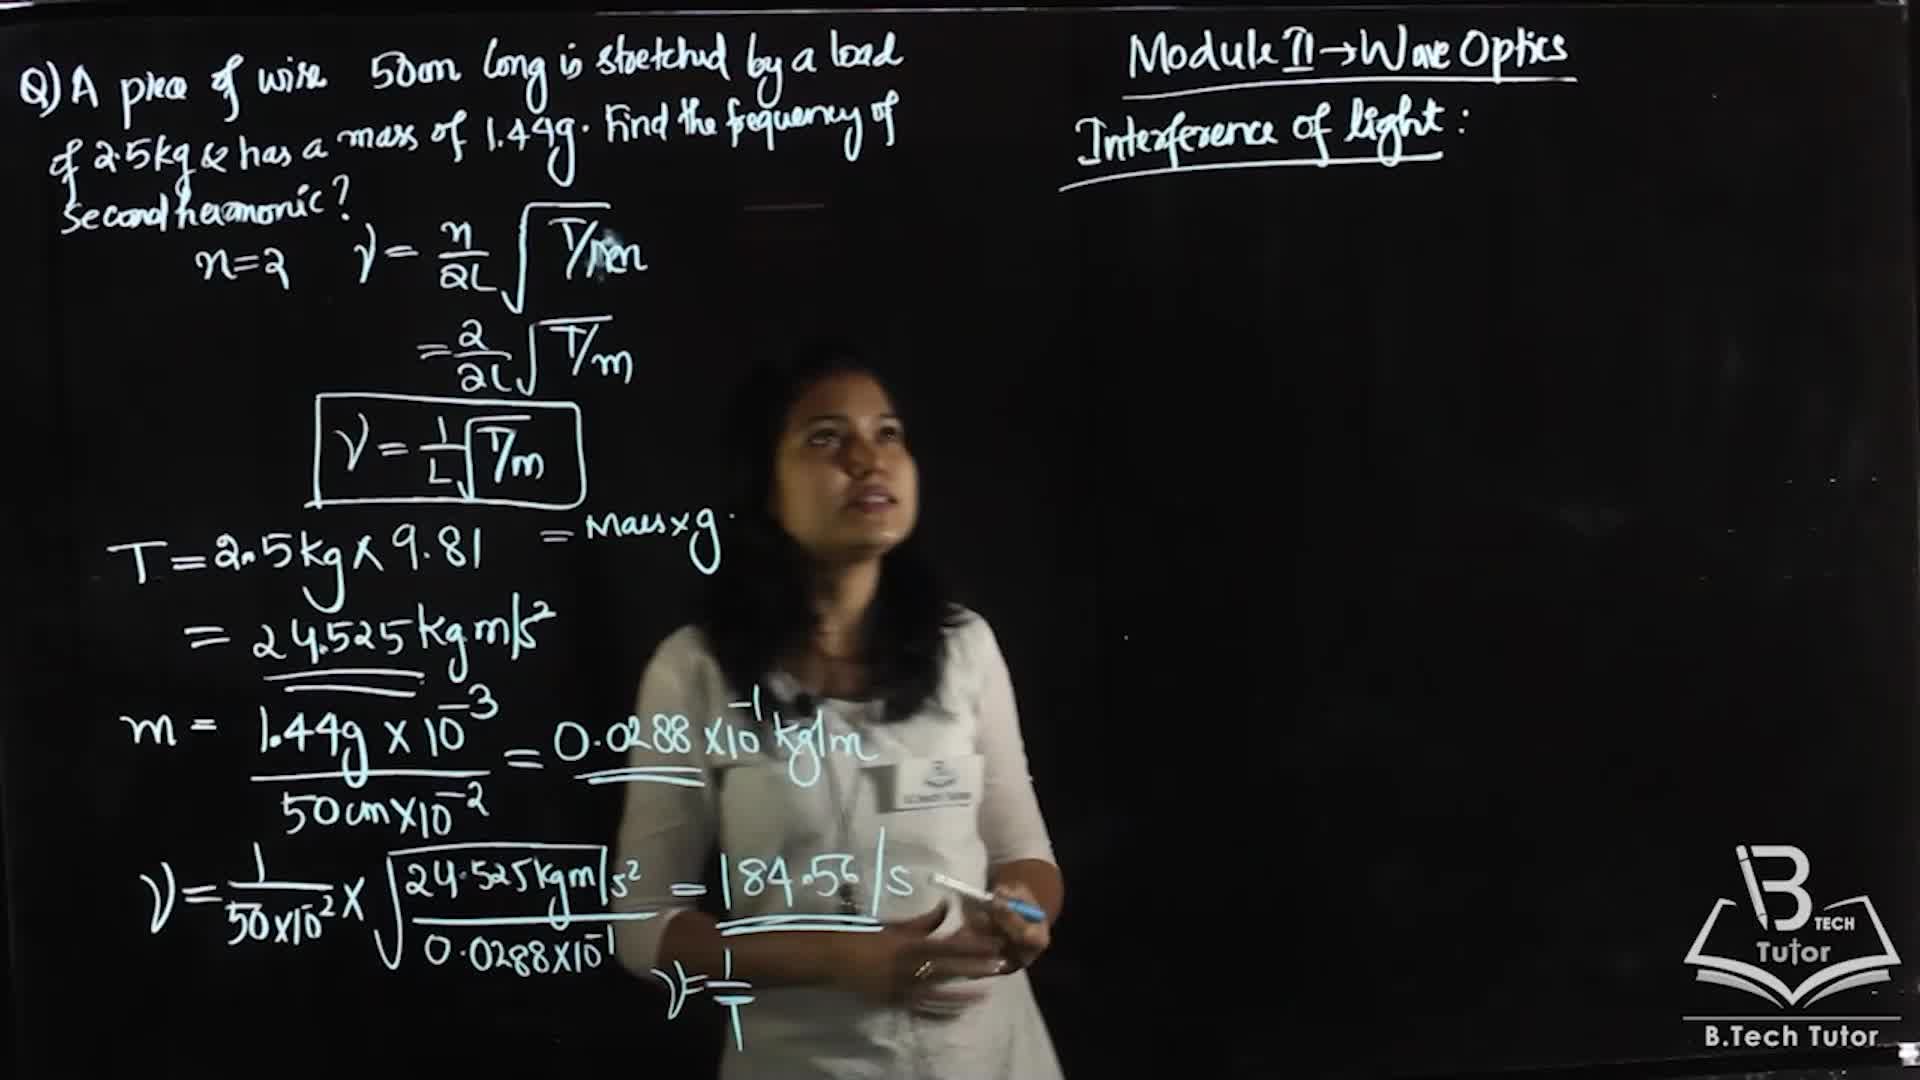 Q) A piece of wire 50cm long is stretched by a load
of 2.5kg & has a mass of 1.44g. Find the frequency of
second harmonic?
n=2 ν = n/2L √T/m
= 2/2L √T/m
ν = 1/L √T/m
T = 2.5kg × 9.81 = Mass × g.
= 24.525 kg m/s²
m = 1.44g × 10⁻³ / 50cm × 10⁻² = 0.0288 × 10⁻¹ kg/m
ν = 1/50×10⁻² × √24.525 kg m/s² / 0.0288×10⁻¹ = 184.56 /s
ν = 1/T
Module II → Wave Optics
Interference of light :
B
TECH
Tutor
B.Tech Tutor